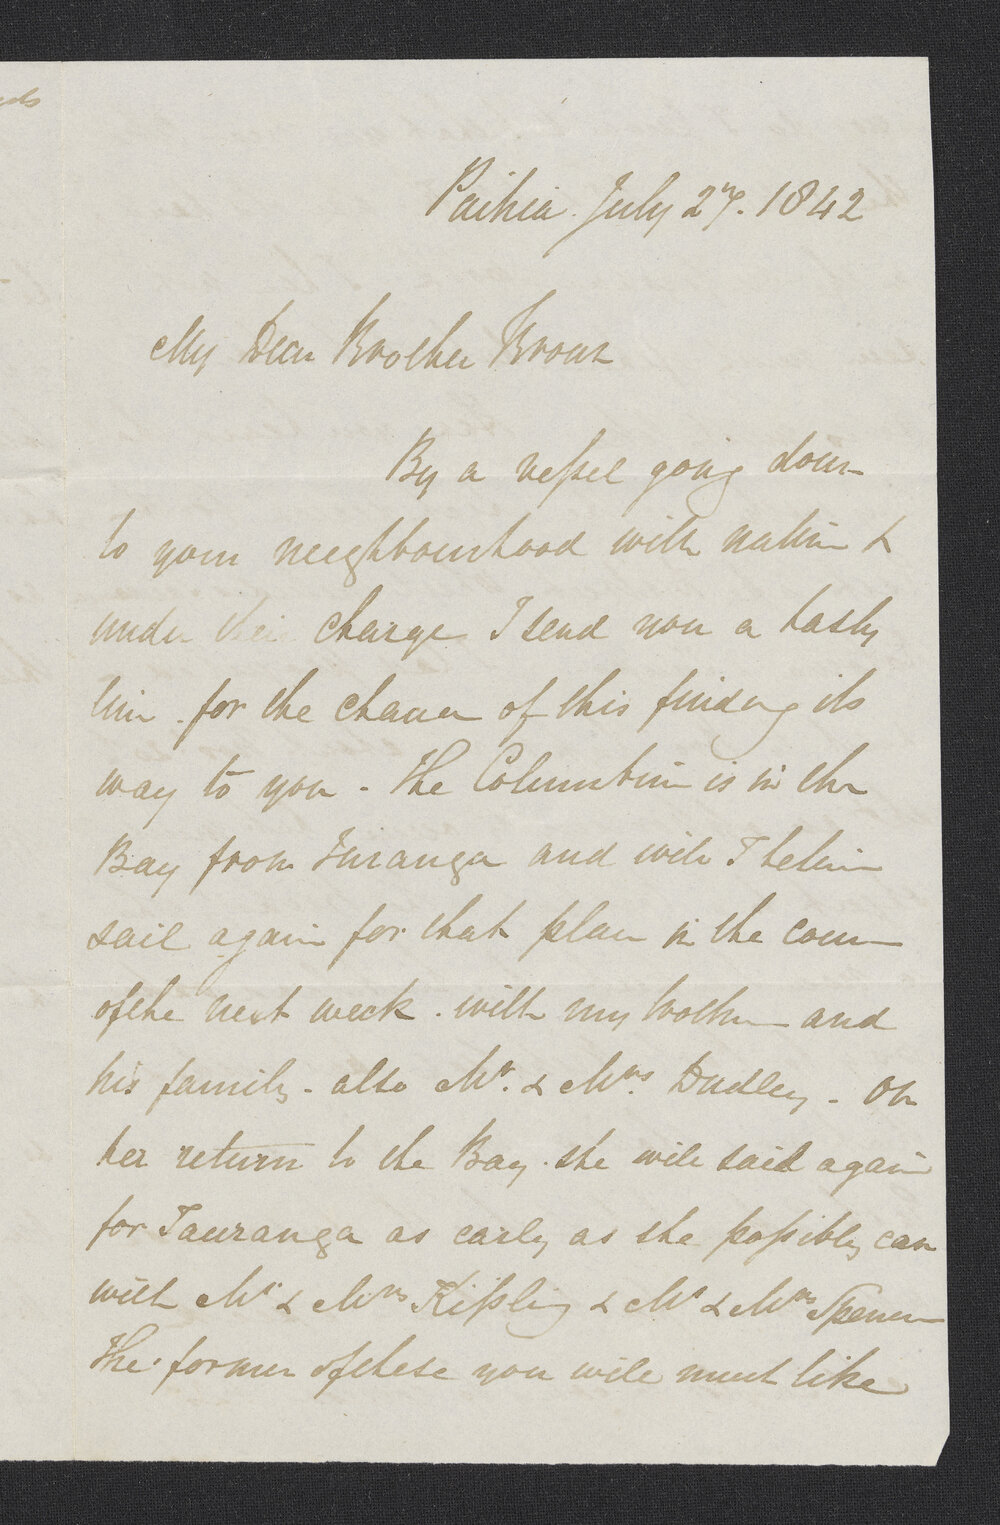 Paihia July 27. 1842
My Dear Brother Brown
By a vessel going down
to your neighbourhood with natives &
under their charge I send you a hasty
line for the chance of this finding its
way to you - The Columbine is in the
Bay from Turanga and will I believe
sail again for that place in the course
of the next week. with my brother and
his family - also Mr. & Mrs. Dudley - On
her return to the Bay. she will sail again
for Tauranga as early as she possibly can
with Mr & Mrs Kissling & Mr & Mrs Spencer
The former of these you will much like